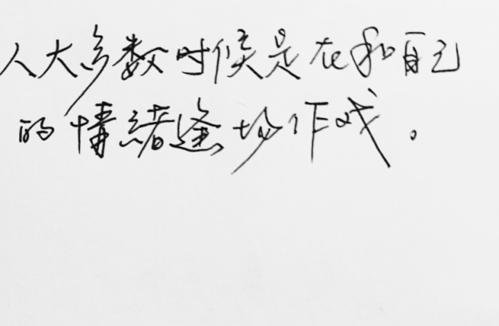 人大多数时候是在和自己
的情绪逢场作戏。